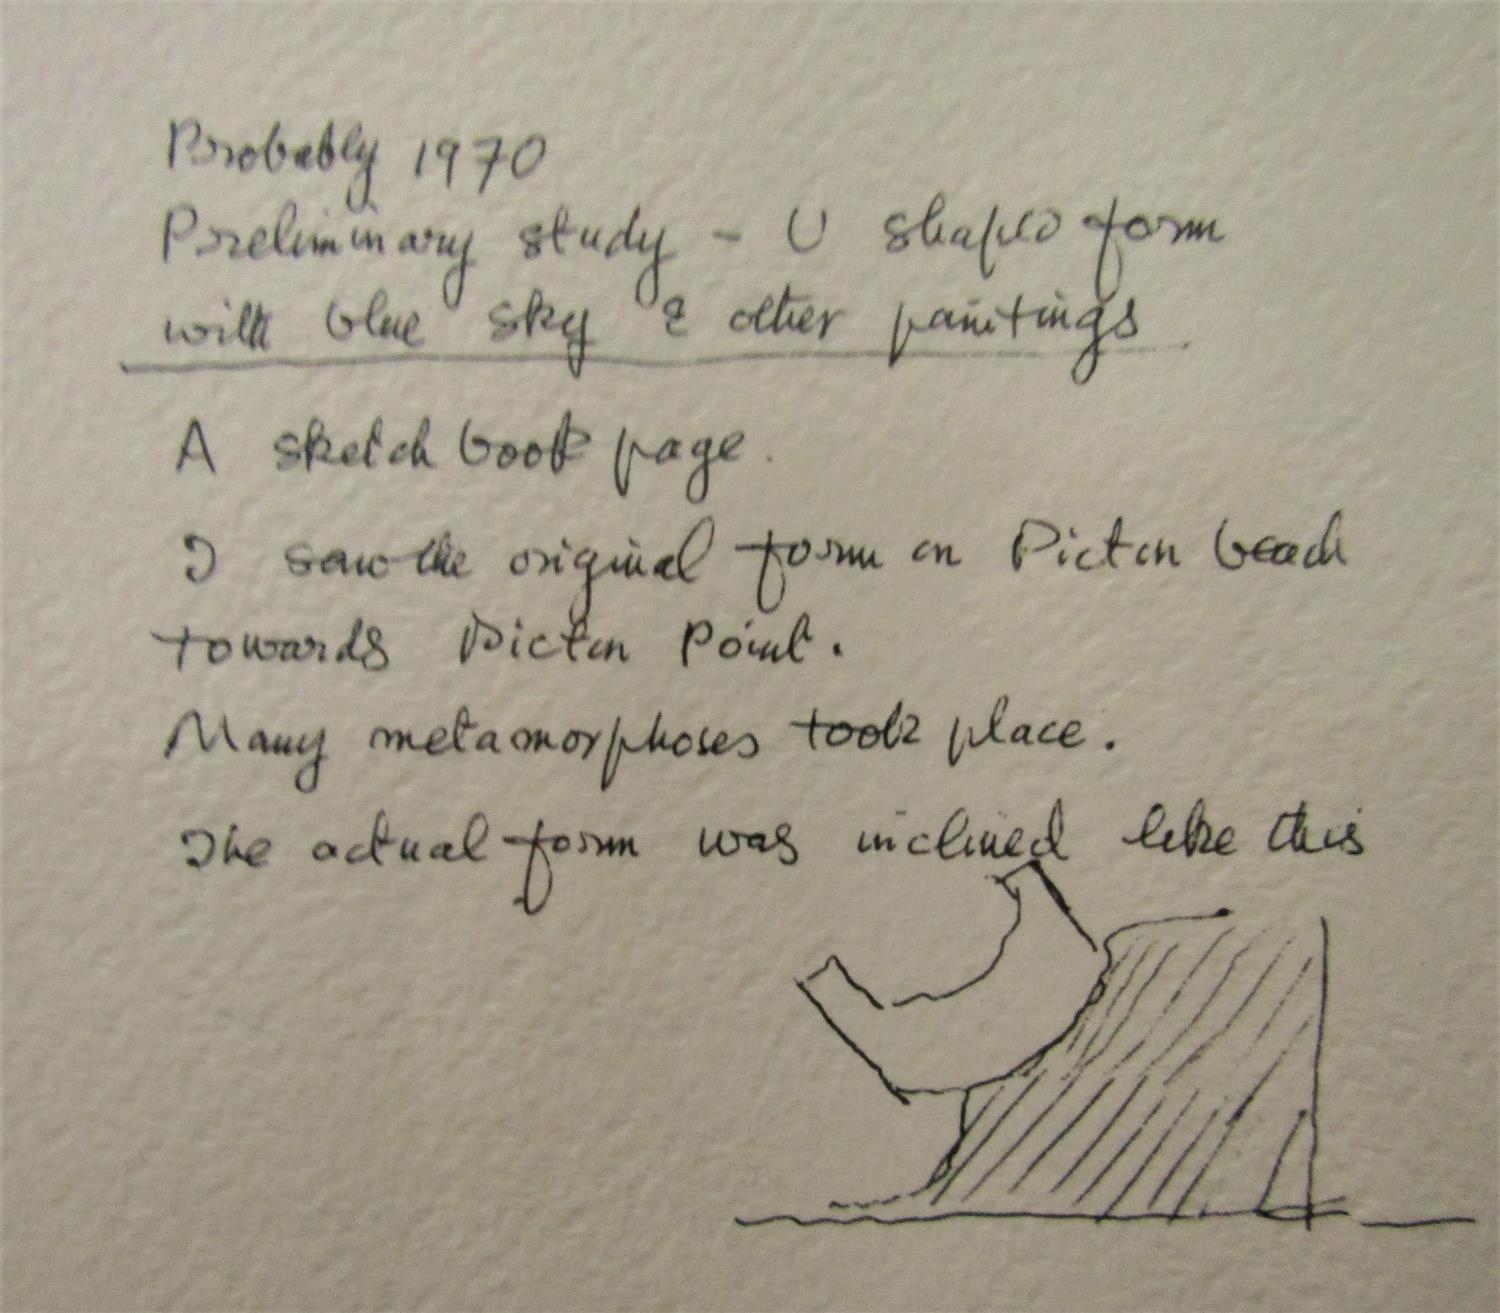 Probably 1970
Preliminary study - U shaped form
with blue sky & other paintings
A sketch book page.
I saw the original form on Picton beach
towards Picton Point.
Many metamorphoses took place.
The actual form was inclined like this